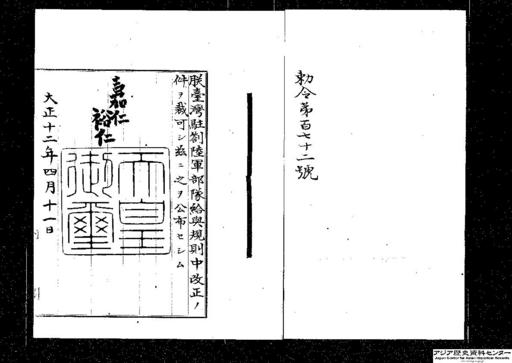 勅令第百七十二號
朕臺灣駐劄陸軍部隊給與規則中改正ノ
件ヲ裁可シ茲ニ之ヲ公布セシム
嘉仁
裕仁
天皇
御璽
大正十二年四月十一日
アジア歴史資料センター
Japan Center for Asian Historical Records